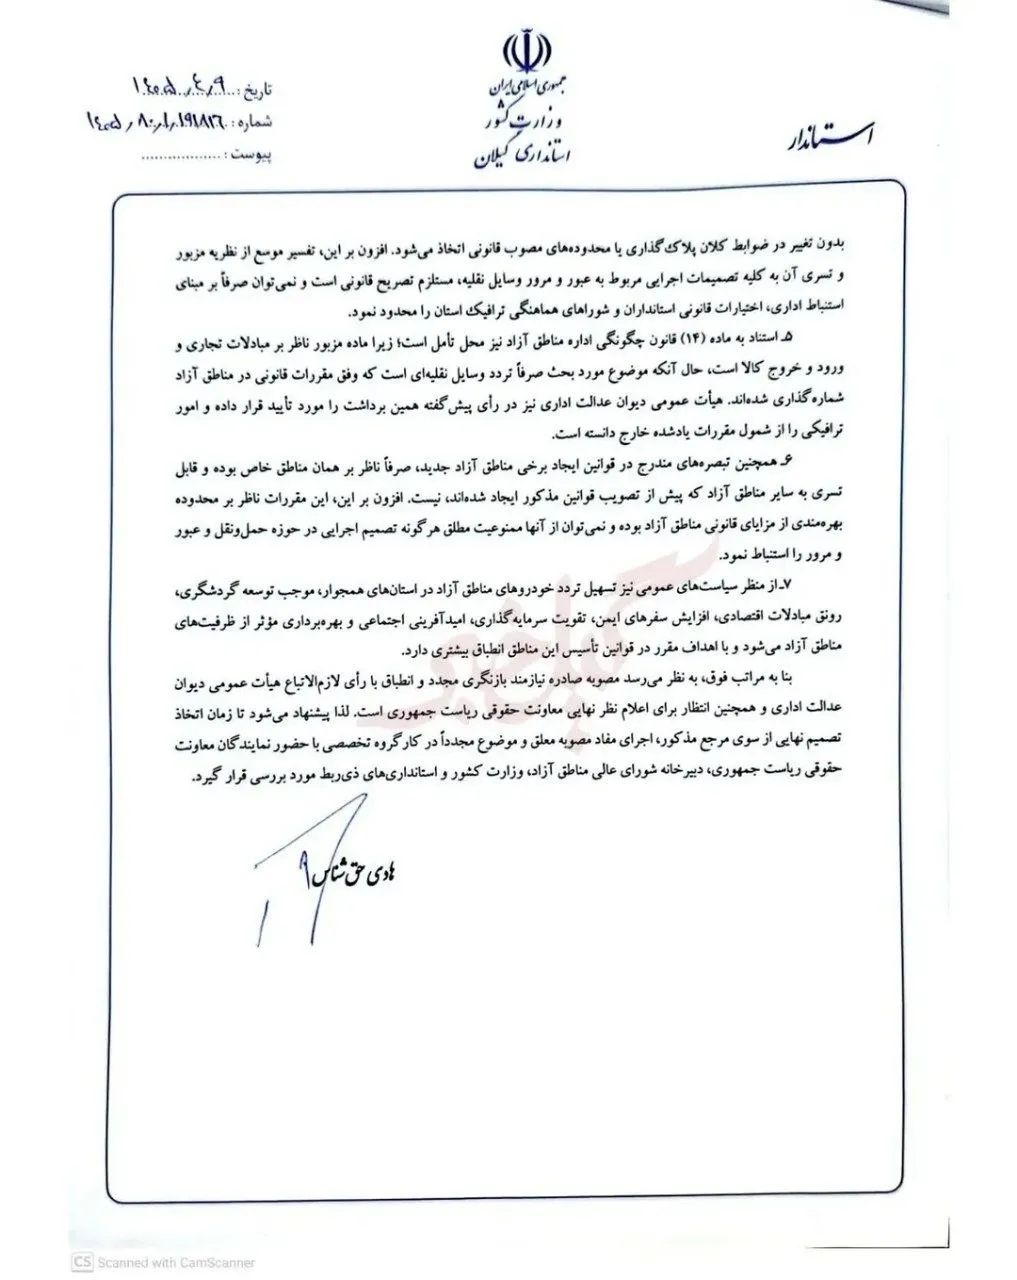 جمهوری اسلامی ایران
وزارت کشور
استانداری گیلان
استاندار
تاریخ: ۱۴۰۵٫۴٫۹
شماره: ۱۴۰۵٫۸۰٫۱٫۱۹۱۸۱۶
پیوست: ..................
بدون تغییر در ضوابط کلان پلاک‌گذاری یا محدوده‌های مصوب قانونی اتخاذ می‌شود. افزون بر این، تفسیر موسع از نظریه مزبور
و تسری آن به کلیه تصمیمات اجرایی مربوط به عبور و مرور وسایل نقلیه، مستلزم تصریح قانونی است و نمی‌توان صرفاً بر مبنای
استنباط اداری، اختیارات قانونی استانداران و شوراهای هماهنگی ترافیک استان را محدود نمود.
۵ـ استناد به ماده (۱۴) قانون چگونگی اداره مناطق آزاد نیز محل تأمل است؛ زیرا ماده مزبور ناظر بر مبادلات تجاری و
ورود و خروج کالا است، حال آنکه موضوع مورد بحث صرفاً تردد وسایل نقلیه‌ای است که وفق مقررات قانونی در مناطق آزاد
شماره‌گذاری شده‌اند. هیأت عمومی دیوان عدالت اداری نیز در رأی پیش‌گفته همین برداشت را مورد تأیید قرار داده و امور
ترافیکی را از شمول مقررات یادشده خارج دانسته است.
۶ـ همچنین تبصره‌های مندرج در قوانین ایجاد برخی مناطق آزاد جدید، صرفاً ناظر بر همان مناطق خاص بوده و قابل
تسری به سایر مناطق آزاد که پیش از تصویب قوانین مذکور ایجاد شده‌اند، نیست. افزون بر این، این مقررات ناظر بر محدوده
بهره‌مندی از مزایای قانونی مناطق آزاد بوده و نمی‌توان از آنها ممنوعیت مطلق هرگونه تصمیم اجرایی در حوزه حمل‌ونقل و عبور
و مرور را استنباط نمود.
۷ـ از منظر سیاست‌های عمومی نیز تسهیل تردد خودروهای مناطق آزاد در استان‌های همجوار، موجب توسعه گردشگری،
رونق مبادلات اقتصادی، افزایش سفرهای ایمن، تقویت سرمایه‌گذاری، امیدآفرینی اجتماعی و بهره‌برداری مؤثر از ظرفیت‌های
مناطق آزاد می‌شود و با اهداف مقرر در قوانین تأسیس این مناطق انطباق بیشتری دارد.
بنا به مراتب فوق، به نظر می‌رسد مصوبه صادره نیازمند بازنگری مجدد و انطباق با رأی لازم‌الاتباع هیأت عمومی دیوان
عدالت اداری و همچنین انتظار برای اعلام نظر نهایی معاونت حقوقی ریاست جمهوری است. لذا پیشنهاد می‌شود تا زمان اتخاذ
تصمیم نهایی از سوی مرجع مذکور، اجرای مفاد مصوبه معلق و موضوع مجدداً در کارگروه تخصصی با حضور نمایندگان معاونت
حقوقی ریاست جمهوری، دبیرخانه شورای عالی مناطق آزاد، وزارت کشور و استانداری‌های ذی‌ربط مورد بررسی قرار گیرد.
هادی حق‌شناس
CS Scanned with CamScanner